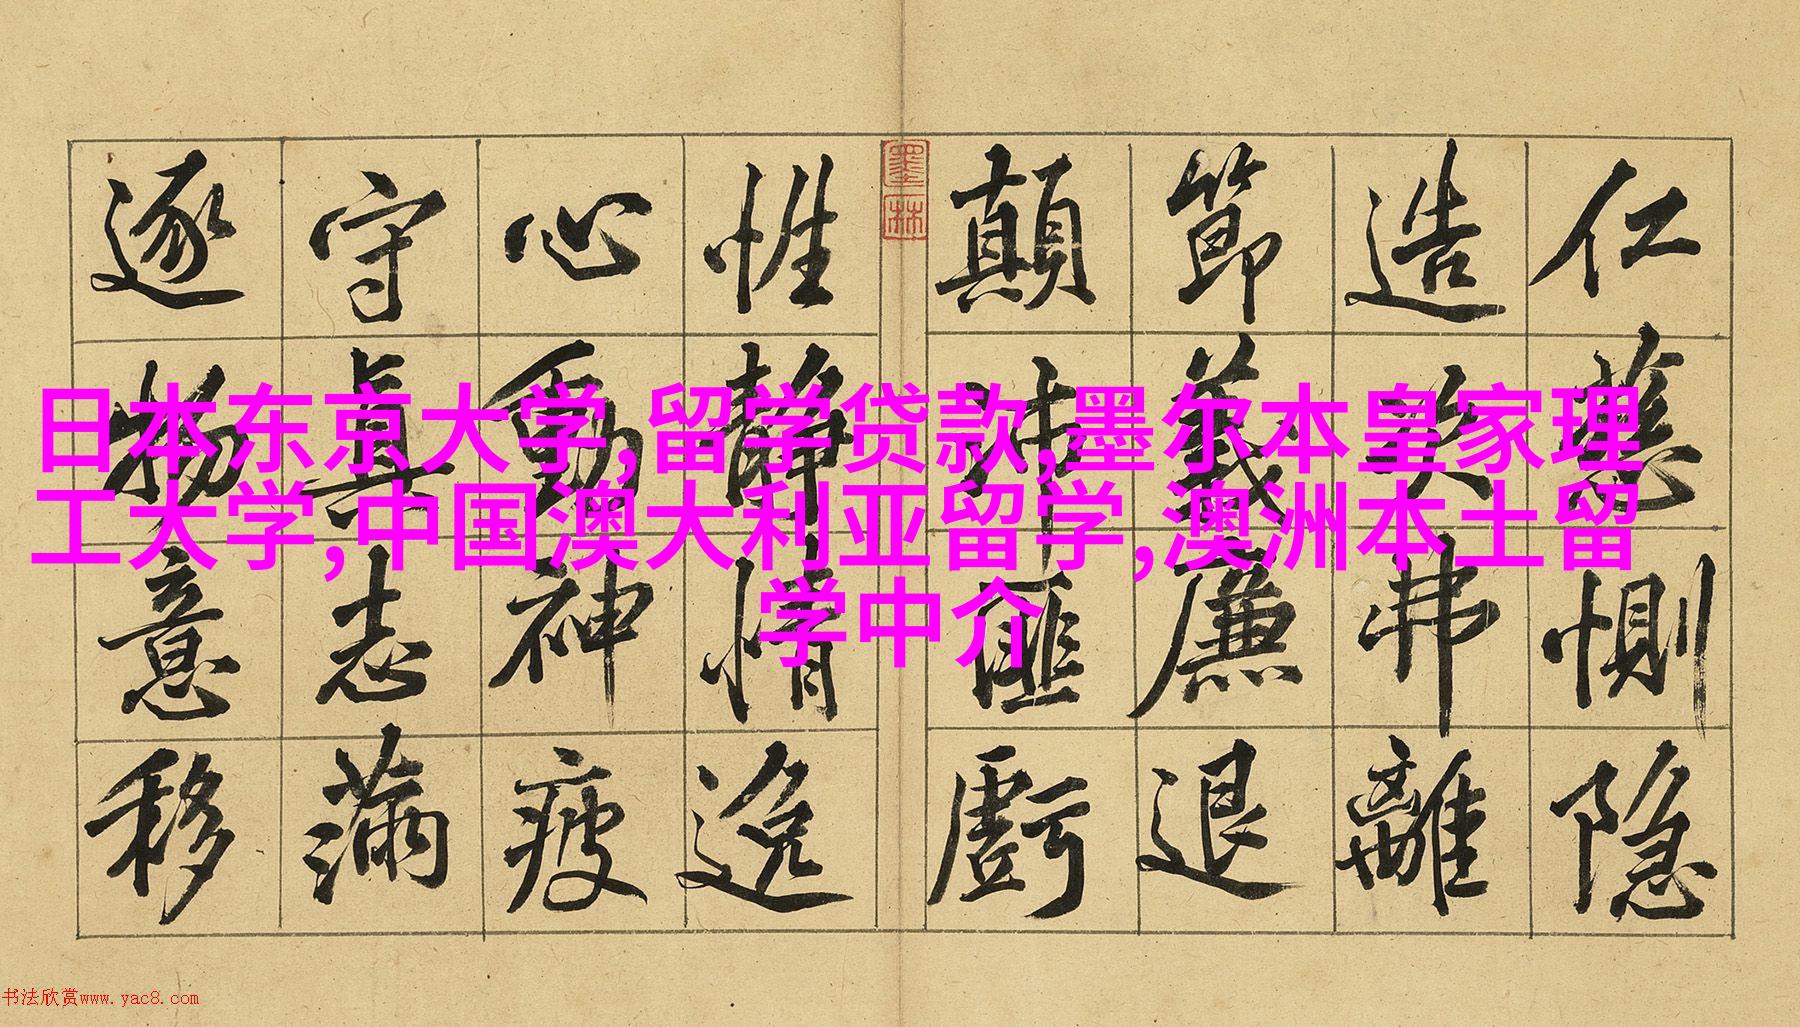 仁慈惻隐
造次弗離
節義廉退
顛沛匪虧
墨林
性静情逸
心動神疲
守真志滿
逐物意移
日本东京大学,留学贷款,墨尔本皇家理
工大学,中国澳大利亚留学,澳洲本土留
学中介
书法欣赏www.yac8.com